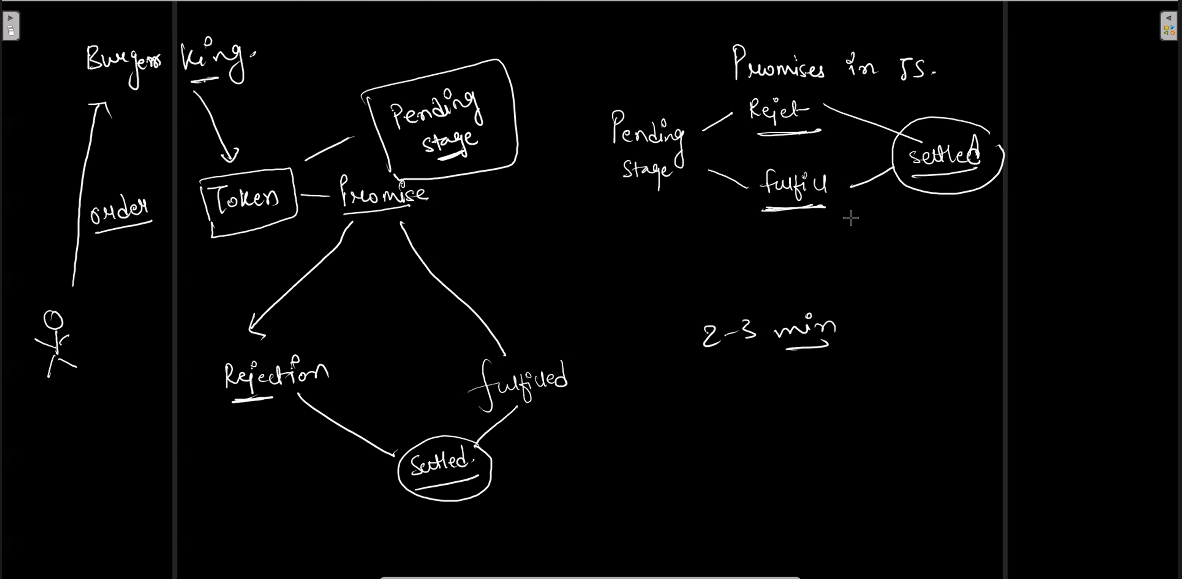 Burger King.
order
Token
Promise
Pending
stage
Rejection
fulfilled
settled.
Promises in JS.
Pending
stage
Rejet
fulfill
settled
2-3 min